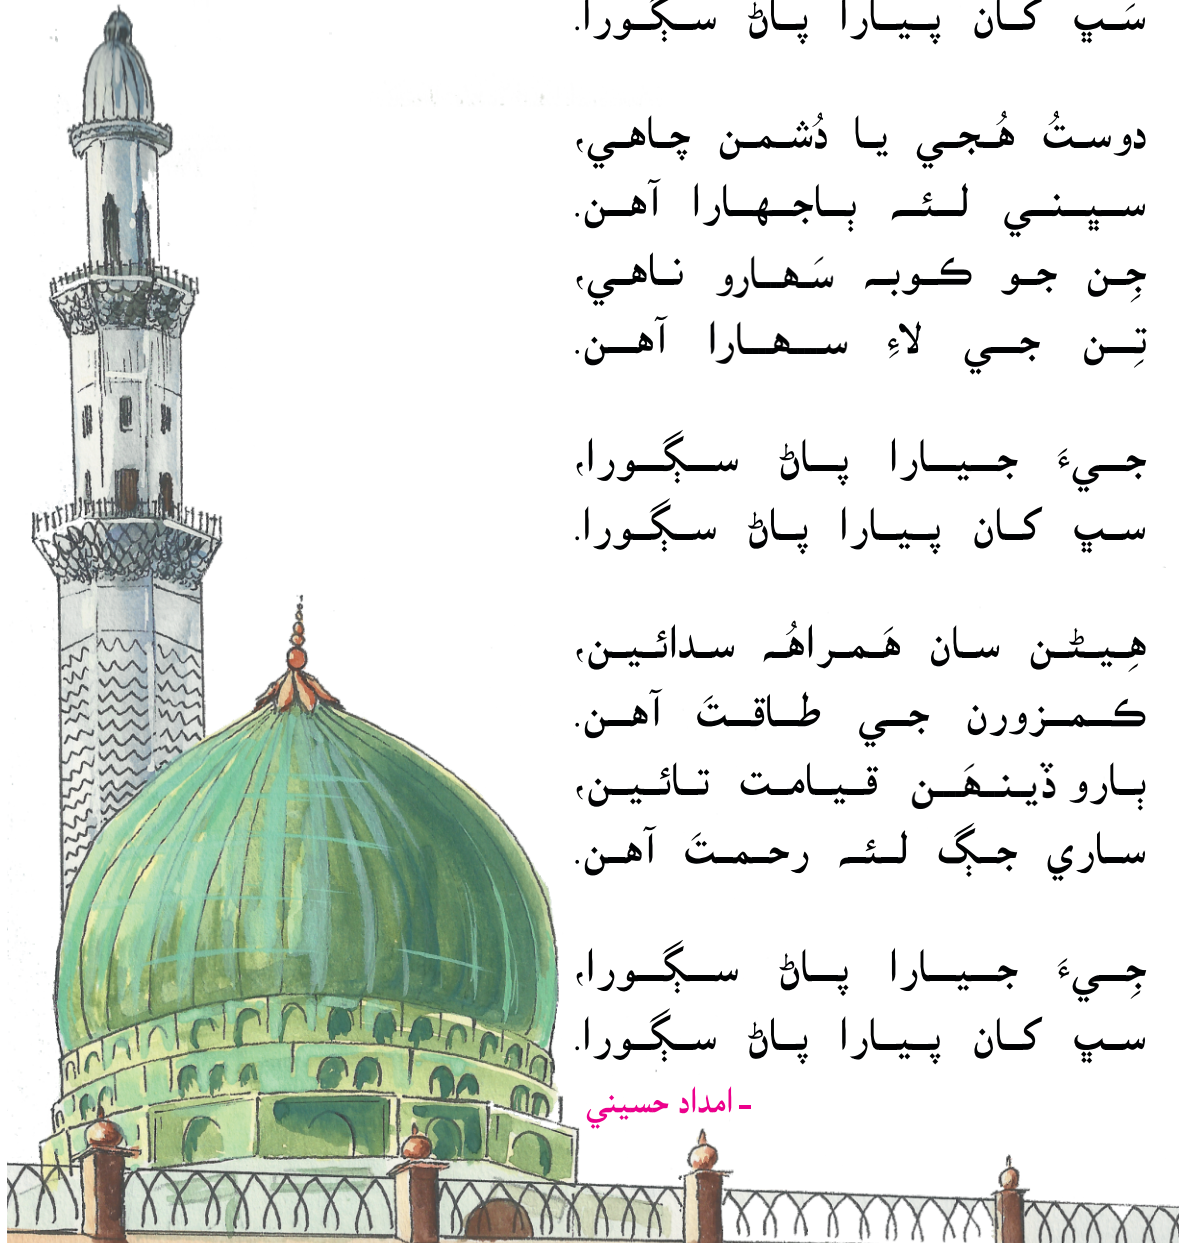 سَڀ کان پيارا پاڻ سڳورا.
دوستُ هُجي يا دُشمن چاهي،
سڀني لئہ ٻاجهارا آهن.
جِن جو ڪوبہ سَهارو ناهي،
تِن جي لاءِ سهارا آهن.
جيءَ جيارا پاڻ سڳورا،
سڀ کان پيارا پاڻ سڳورا.
هِيڻن سان هَمراهُہ سدائين،
ڪمزورن جي طاقتَ آهن.
ٻارو ڏينهَن قيامت تائين،
ساري جڳ لئہ رحمتَ آهن.
جِيءَ جيارا پاڻ سڳورا،
سڀ کان پيارا پاڻ سڳورا.
- امداد حسيني